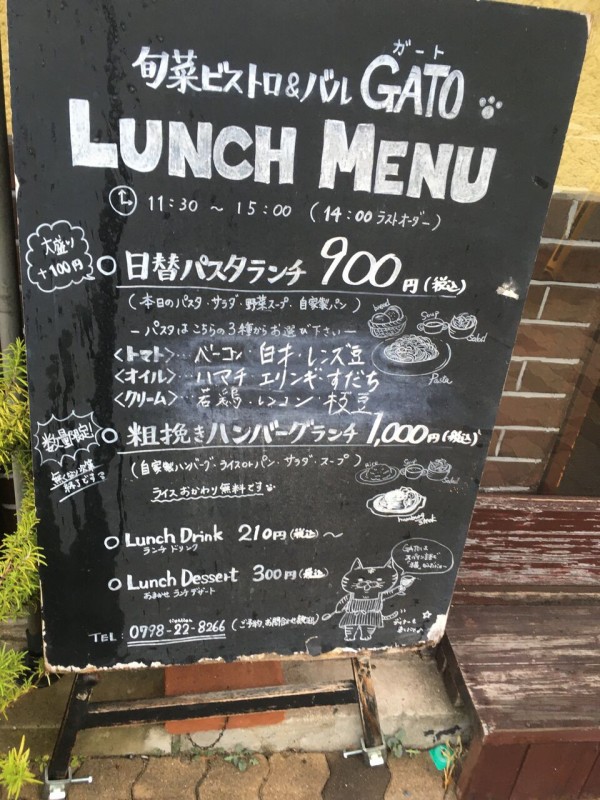 ガート
旬菜ビストロ&バル GATO
LUNCH MENU
11:30 ～ 15:00 (14:00 ラストオーダー)
大盛り
+100円
日替パスタランチ 900円(税込)
(本日のパスタ・サラダ・野菜スープ・自家製パン)
ーパスタはこちらの3種からお選び下さいー
<トマト>…ベーコン・白ネギ・レンズ豆
<オイル>…ハマチ エリンギ・すだち
<クリーム>…若鶏・レンコン・枝豆
bread
Soup
Salad
Pasta
数量限定
無くなり次第
終了です
粗挽きハンバーグランチ 1,000円(税込)
(自家製ハンバーグ・ライスorパン・サラダ・スープ)
ライスおかわり無料です
rice
Soup
Salad
hamburg
steak
Lunch Drink 210円(税込)～
ランチ ドリンク
Lunch Dessert 300円(税込)
おまかせ ランチデザート
TEL: 0798-22-8266 (ご予約、お問合せ歓迎)
GATOとは
スペイン語で
"猫"
ディナーも